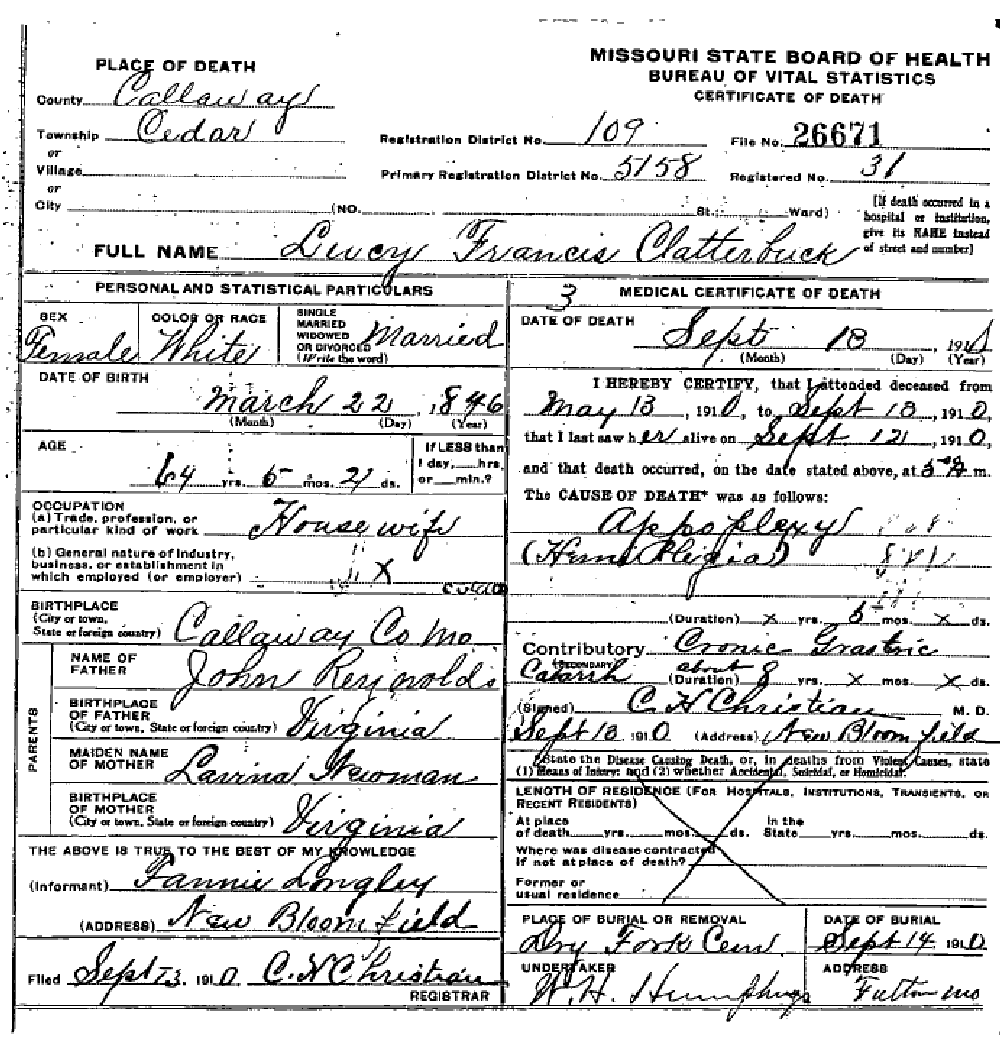 MISSOURI STATE BOARD OF HEALTH
BUREAU OF VITAL STATISTICS
CERTIFICATE OF DEATH
PLACE OF DEATH
County Callaway
Township Cedar
or
Village
or
City (NO. St.; Ward)
Registration District No. 109 File No. 26671
Primary Registration District No. 5158 Registered No. 31
[If death occurred in a
hospital or institution,
give its NAME instead
of street and number]
FULL NAME Lucy Francis Clatterbuck
PERSONAL AND STATISTICAL PARTICULARS
SEX Female
COLOR OR RACE White
SINGLE
MARRIED
WIDOWED
OR DIVORCED
(Write the word) Married
DATE OF BIRTH
March 22, 1846
(Month) (Day) (Year)
AGE
64 yrs. 5 mos. 21 ds.
If LESS than
1 day, hrs.
or min.?
OCCUPATION
(a) Trade, profession, or
particular kind of work House wife
(b) General nature of industry,
business, or establishment in
which employed (or employer) X
BIRTHPLACE
(City or town,
State or foreign country) Callaway Co Mo
PARENTS
NAME OF
FATHER John Reynolds
BIRTHPLACE
OF FATHER
(City or town, State or foreign country) Virginia
MAIDEN NAME
OF MOTHER Lavina Newman
BIRTHPLACE
OF MOTHER
(City or town, State or foreign country) Virginia
THE ABOVE IS TRUE TO THE BEST OF MY KNOWLEDGE
(Informant) Fannie Longley
(ADDRESS) New Bloomfield
Filed Sept 13 1910 C. H Christian
REGISTRAR
3 MEDICAL CERTIFICATE OF DEATH
DATE OF DEATH
Sept 13, 191
(Month) (Day) (Year)
I HEREBY CERTIFY, that I attended deceased from
May 13, 1910, to Sept 13, 1910,
that I last saw her alive on Sept 12, 1910,
and that death occurred, on the date stated above, at 5 A m.
The CAUSE OF DEATH* was as follows:
Appoplexy
(Hemi Pligia)
(Duration) x yrs. 5 mos. x ds.
Contributory Cronic Grastric
(SECONDARY)
Catarrh about
(Duration) 8 yrs. x mos. x ds.
(Signed) C. H Christian M. D.
Sept 13 1910 (Address) New Bloomfield
*State the Disease Causing Death, or, in deaths from Violent Causes, state
(1) Means of Injury; and (2) whether Accidental, Suicidal, or Homicidal.
LENGTH OF RESIDENCE (FOR HOSPITALS, INSTITUTIONS, TRANSIENTS, OR
RECENT RESIDENTS)
At place
of death yrs. mos. ds.
In the
State yrs. mos. ds.
Where was disease contracted
if not at place of death?
Former or
usual residence
PLACE OF BURIAL OR REMOVAL
Dry Fork Cem
DATE OF BURIAL
Sept 14 1910
UNDERTAKER
W. H. Humphrys
ADDRESS
Fulton Mo